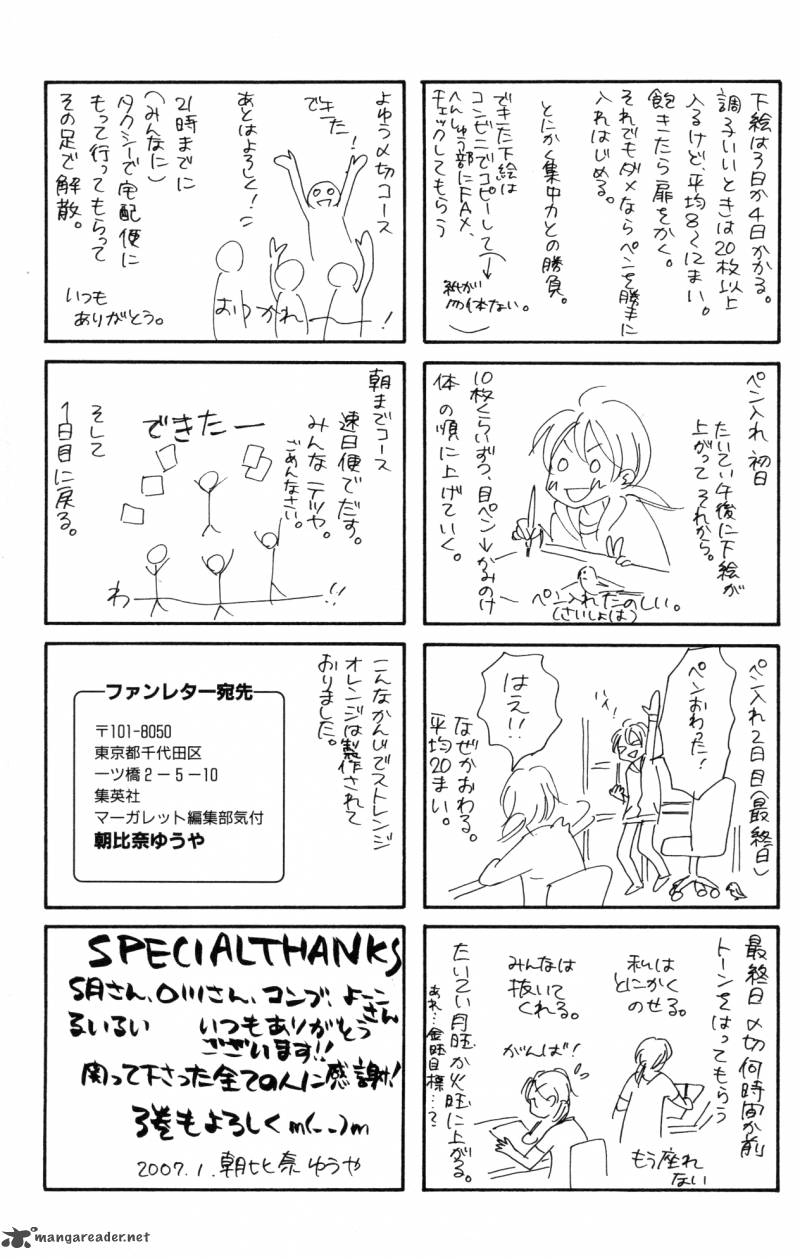 下絵は3日か4日かかる。
調子いいときは20枚以上
入るけど、平均8〜12まい。
飽きたら扉をかく。
それでもダメならペンを勝手に
入れはじめる。
とにかく集中力との勝負。
できた下絵は
コンビニでコピーして→
へんしゅう部にFAX、
チェックしてもらう
紙が
勿体ない。
ペン入れ 初日
たいてい午後に下絵が
上がって それから。
10枚くらいずつ、目ペン→かみのけ
体 の順に上げていく。
ペン入れたのしい。
(さいしょは)
ペン入れ2日目(最終日)
ペンおわった!
はえ!!
なぜかおわる。
平均20まい。
最終日 〆切何時間か前
トーンをはってもらう
私は
とにかく
のせる。
みんなは
抜いて
くれる。
がんば!
もう座れ
ない
たいてい月旺か火旺に上がる。
あれ…金旺目標…?
よゆう〆切コース
できた!
あとはよろしく!
21時までに
(みんなに)
タクシーで宅配便に
もって行ってもらって
その足で解散。
おつかれー!
いつも
ありがとう。
朝までコース
速日便でだす。
みんなテツヤ。
ごめんなさい。
できたー
わ!!
そして
1日目に戻る。
こんなかんじでストレンジ
オレンジは製作されて
おりました。
ファンレター宛先
〒101-8050
東京都千代田区
一ツ橋2-5-10
集英社
マーガレット編集部気付
朝比奈ゆうや
SPECIALTHANKS
S月さん、O川さん、コンブ、よーこさん
るいるい いつもありがとう
ございます!!
関って下さった全ての人に感謝!
3巻もよろしくm(_ _)m
2007.1.朝比奈ゆうや
mangareader.net